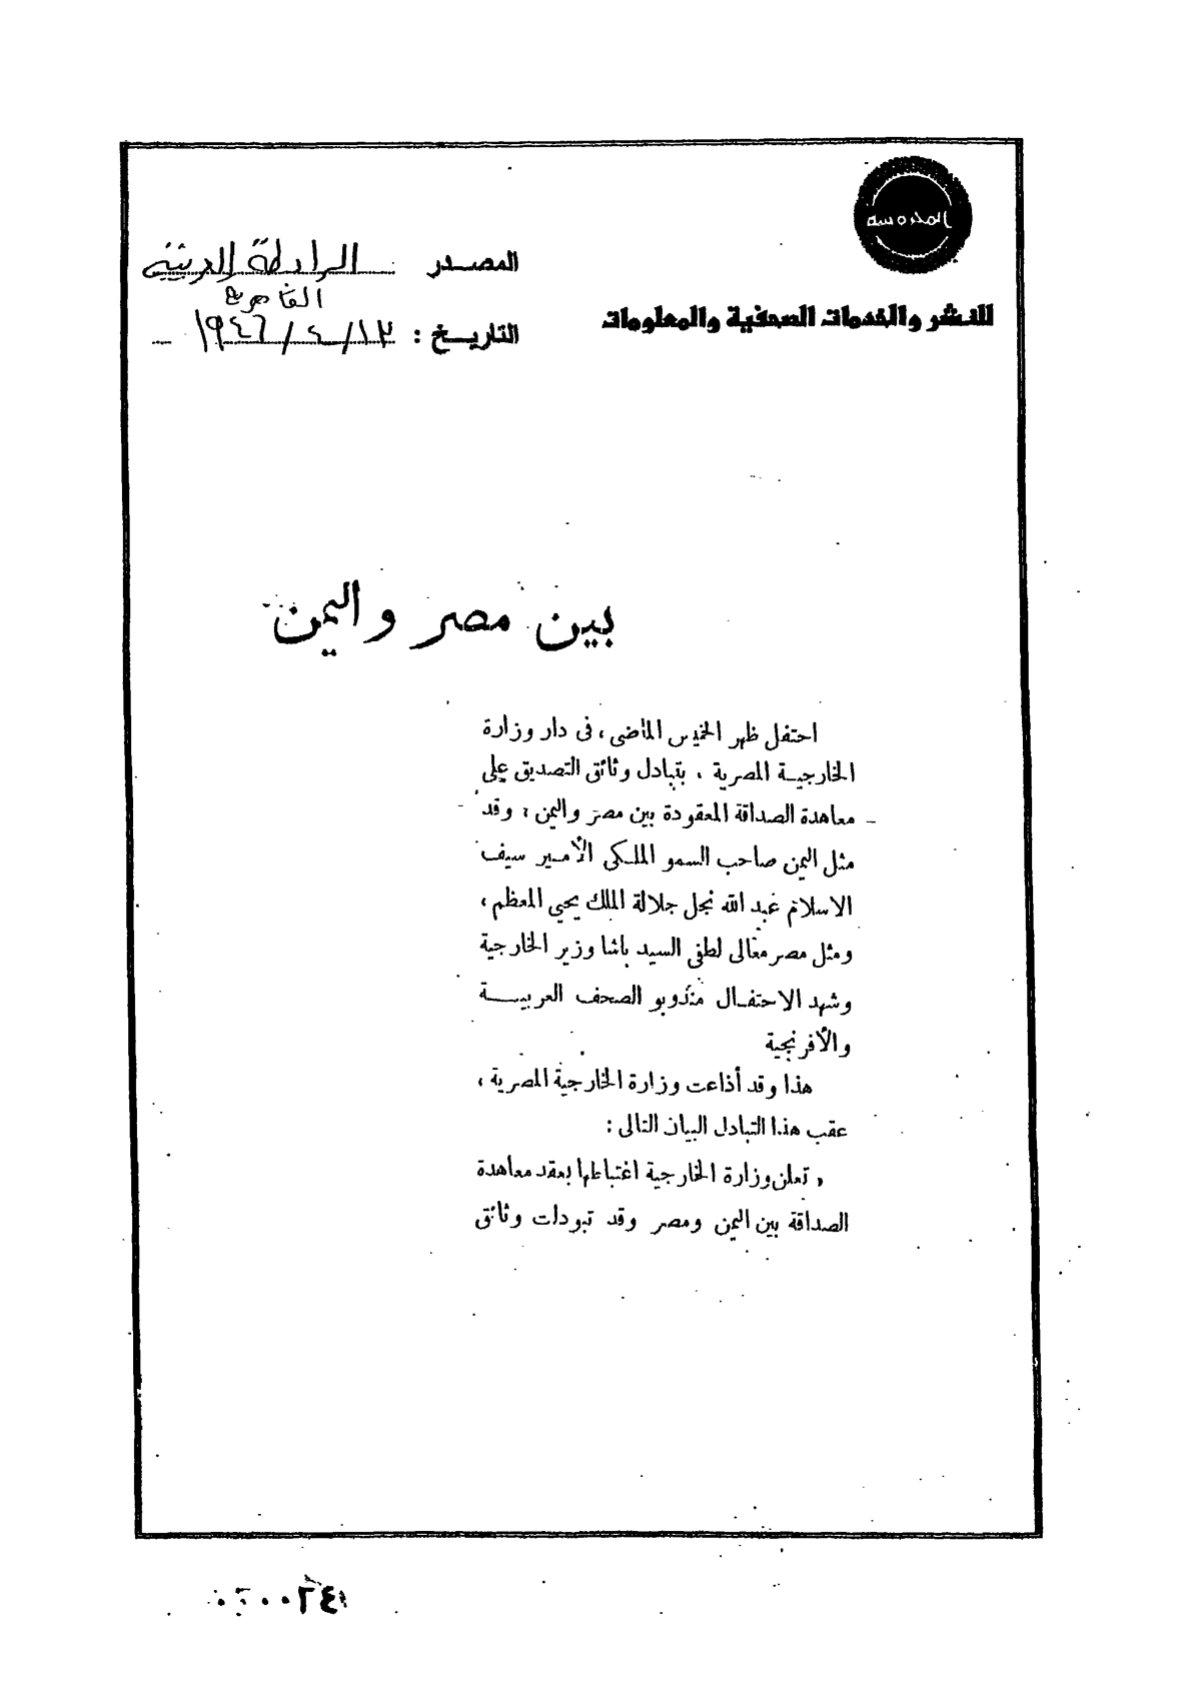 المحروسة
للنشر والخدمات الصحفية والمعلومات
المصدر الرابطة العربية
القاهرة
التاريخ : ١٩٤٦/٤/١٣
بين مصر واليمن
احتفل ظهر الخميس الماضى ، فى دار وزارة
الخارجية المصرية ، بتبادل وثائق التصديق على
معاهدة الصداقة المعقودة بين مصر واليمن ، وقد
مثل اليمن صاحب السمو الملكى الأمير سيف
الاسلام عبد الله نجل جلالة الملك يحيى المعظم ،
ومثل مصر معالى لطفى السيد باشا وزير الخارجية
وشهد الاحتفال مندوبو الصحف العربية
والأفرنجية
هذا وقد أذاعت وزارة الخارجية المصرية ،
عقب هذا التبادل البيان التالى :
« تعلن وزارة الخارجية اغتباطها بعقد معاهدة
الصداقة بين اليمن ومصر وقد تبودلت وثائق